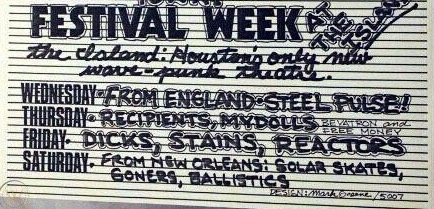 FESTIVAL WEEK AT THE ISLAND
the Island: Houston's only new
wave-punk theatre.
WEDNESDAY• FROM ENGLAND• STEEL PULSE!!
THURSDAY• RECIPIENTS, MYDOLLS REVATRON and FREE MONEY
FRIDAY• DICKS, STAINS, REACTORS
SATURDAY• FROM NEW ORLEANS: SOLAR SKATES,
GONERS, BALLISTICS
DESIGN: Mark Greene /5007